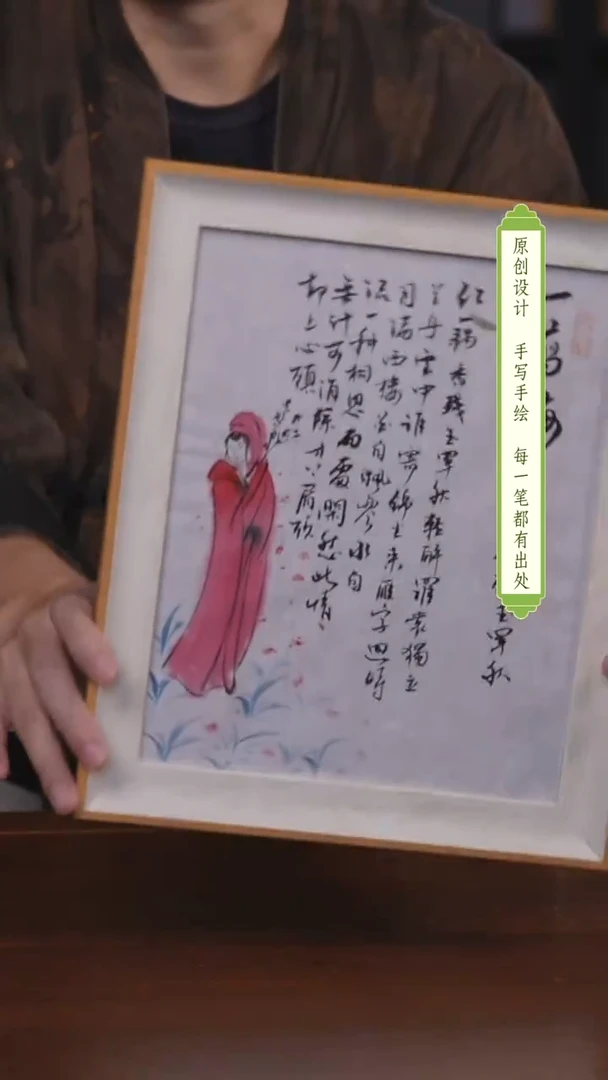 原创设计 手写手绘 每一笔都有出处
玉簟秋
红藕香残玉簟秋轻解羅裳獨上
兰舟雲中谁寄锦书来雁字回時
月满西楼花自飘零水自
流一种相思两處閑愁此情
無计可消除才下眉頭
却上心頭